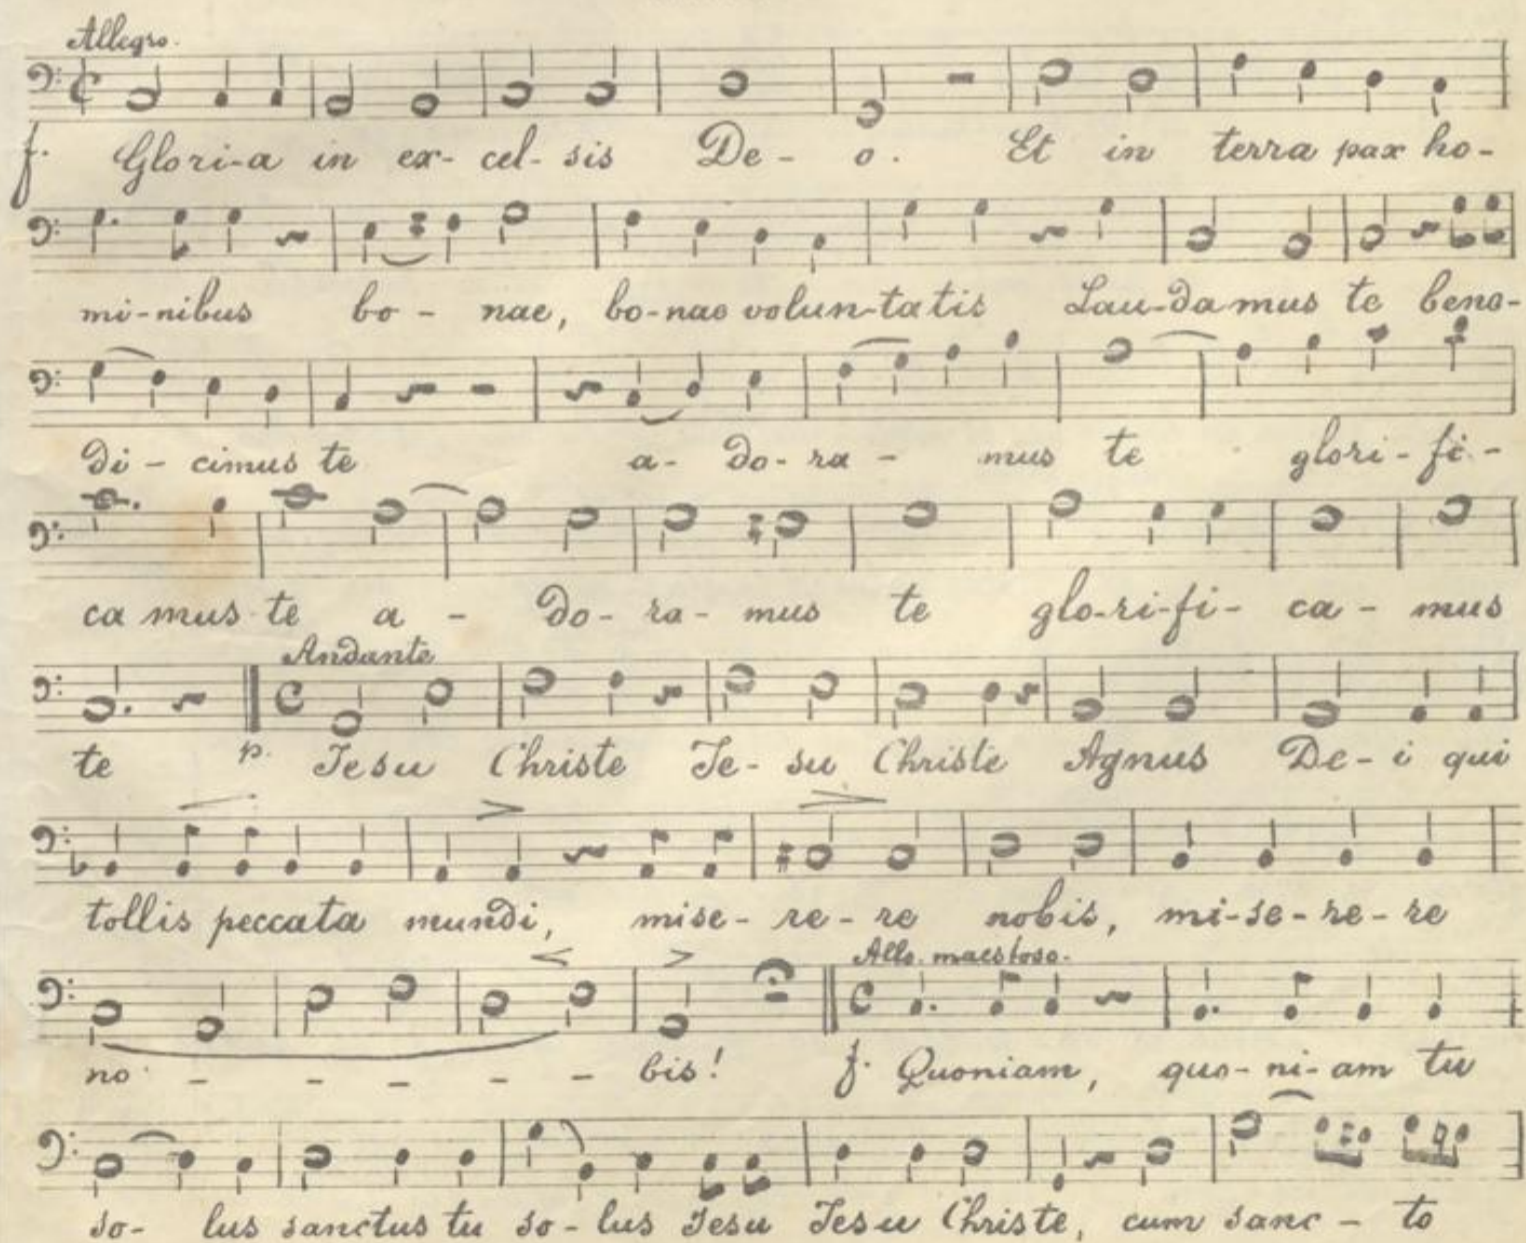 Allegro.
f. Glori-a in ex- cel- sis De- o. Et in terra pax ho-
mi-nibus bo- nae, bo-nae volun-tatis Lau-damus te bene-
di- cimus te a- do- ra- mus te glori- fi-
ca mus te a- do- ra- mus te glo-ri-fi- ca- mus
Andante
te p. Jesu Christe Je- su Christe Agnus De- i qui
tollis peccata mundi, mise- re- re nobis, mi-se-re-re
Allo. maestoso.
no - - - - - bis! f. Quoniam, quo- ni- am tu
so- lus sanctus tu so- lus Jesu Jesu Christe, cum sanc- to